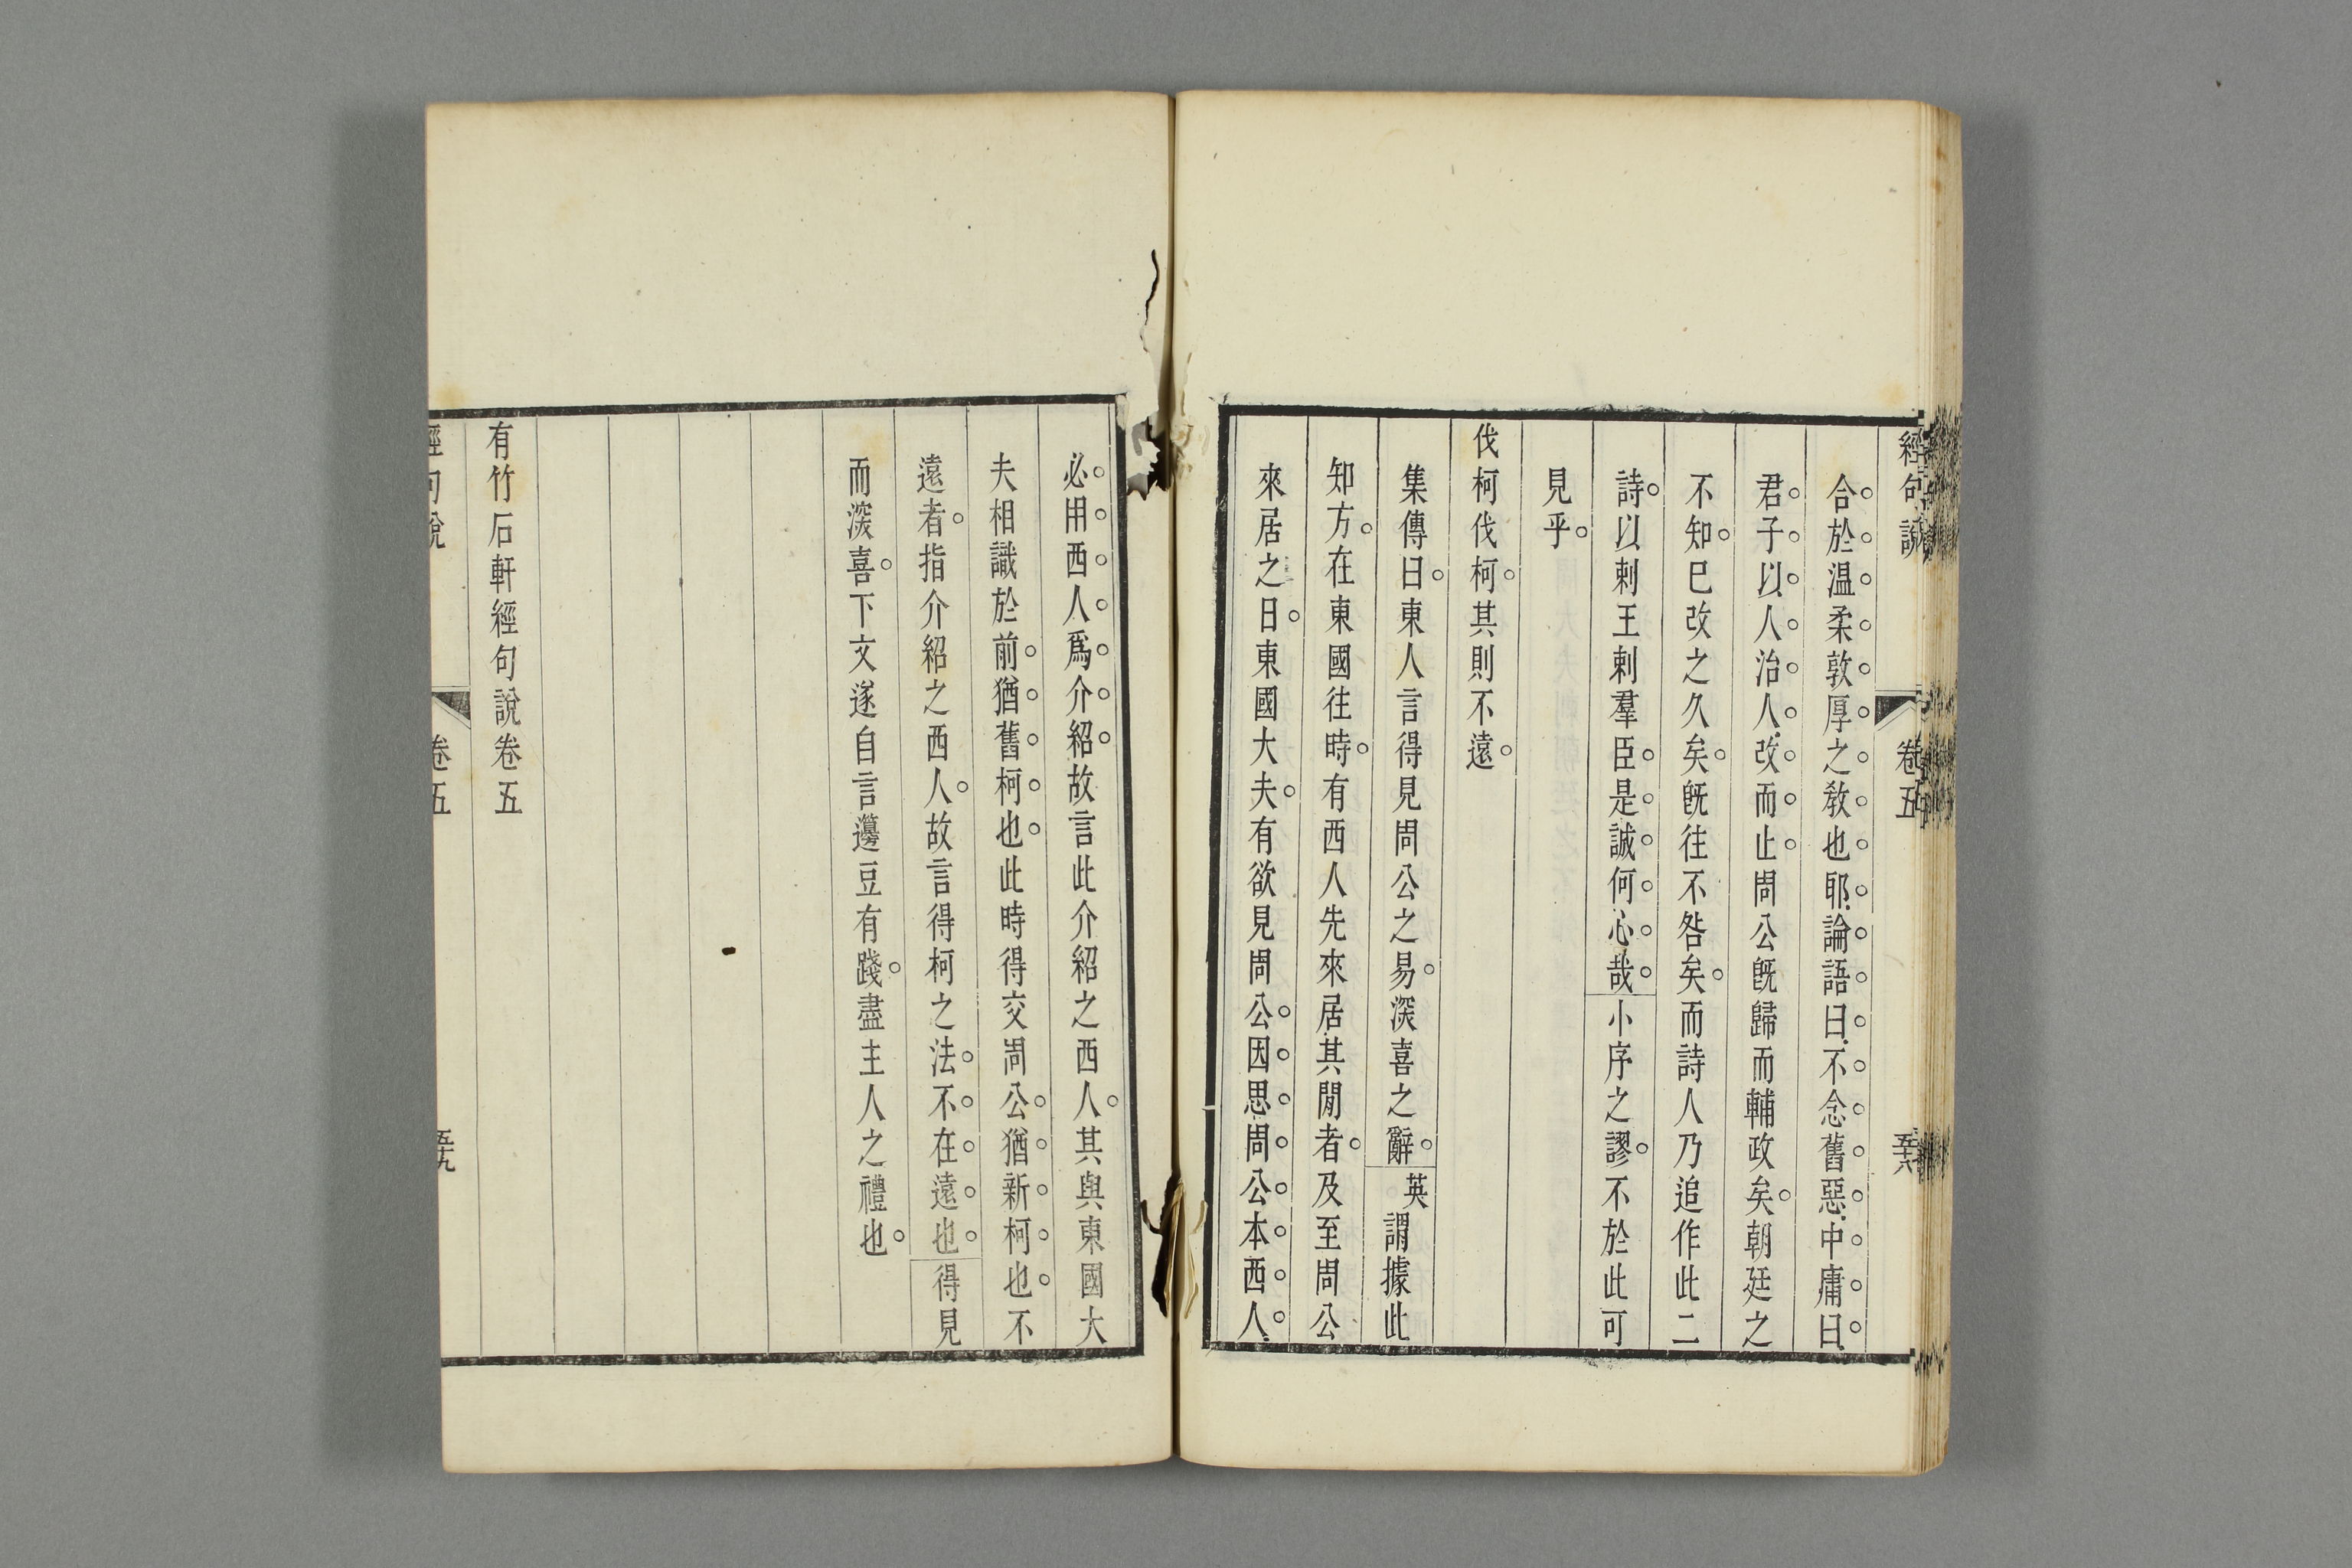 經句說 卷五 五十八
合於温柔敦厚之敎也耶論語曰不念舊惡中庸曰
君子以人治人改而止周公既歸而輔政矣朝廷之
不知巳改之久矣既往不咎矣而詩人乃追作此二
詩以刺王刺羣臣是誠何心哉小序之謬不於此可
見乎
伐柯伐柯其則不遠
集傳曰東人言得見周公之易深喜之辭英謂據此
知方在東國往時有西人先來居其閒者及至周公
來居之日東國大夫有欲見周公因思周公本西人
必用西人爲介紹故言此介紹之西人其與東國大
夫相識於前猶舊柯也此時得交周公猶新柯也不
遠者指介紹之西人故言得柯之法不在遠也得見
而深喜下文遂自言籩豆有踐盡主人之禮也
有竹石軒經句說卷五
經句說 卷五 五十九